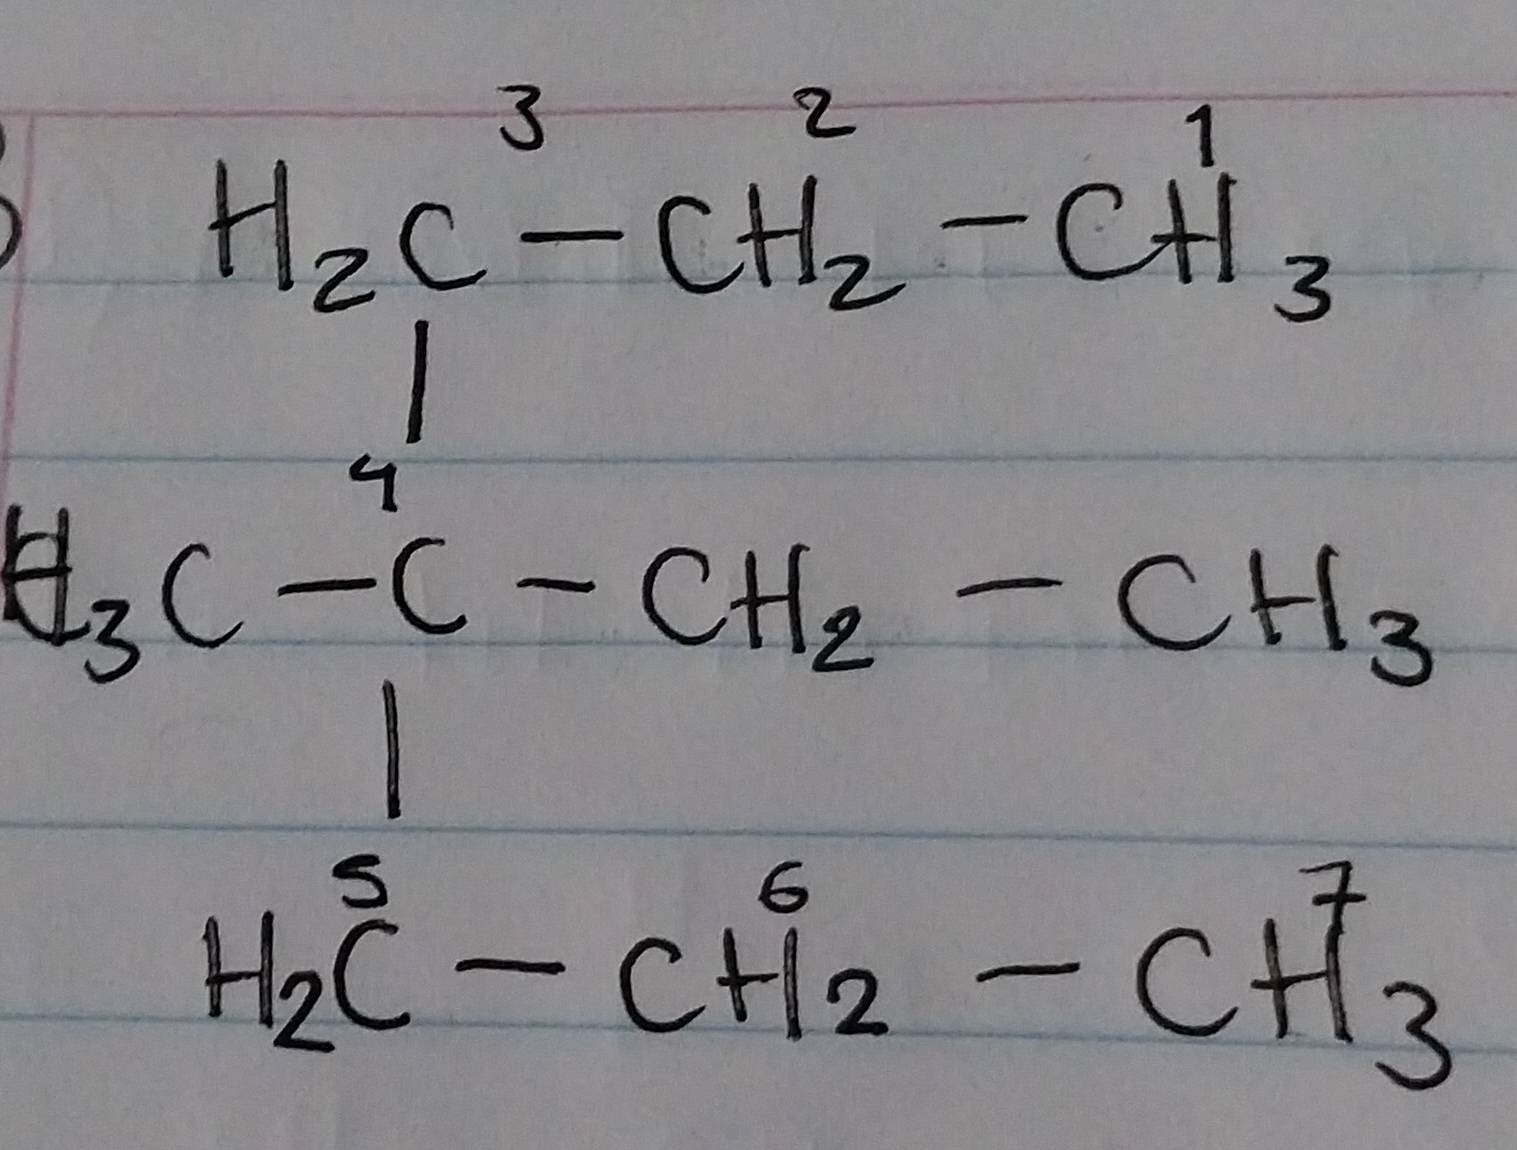 3 2 1
H₂C - CH₂ - CH₃
|
4
H₃C - C - CH₂ - CH₃
|
5 6 7
H₂C - CH₂ - CH₃